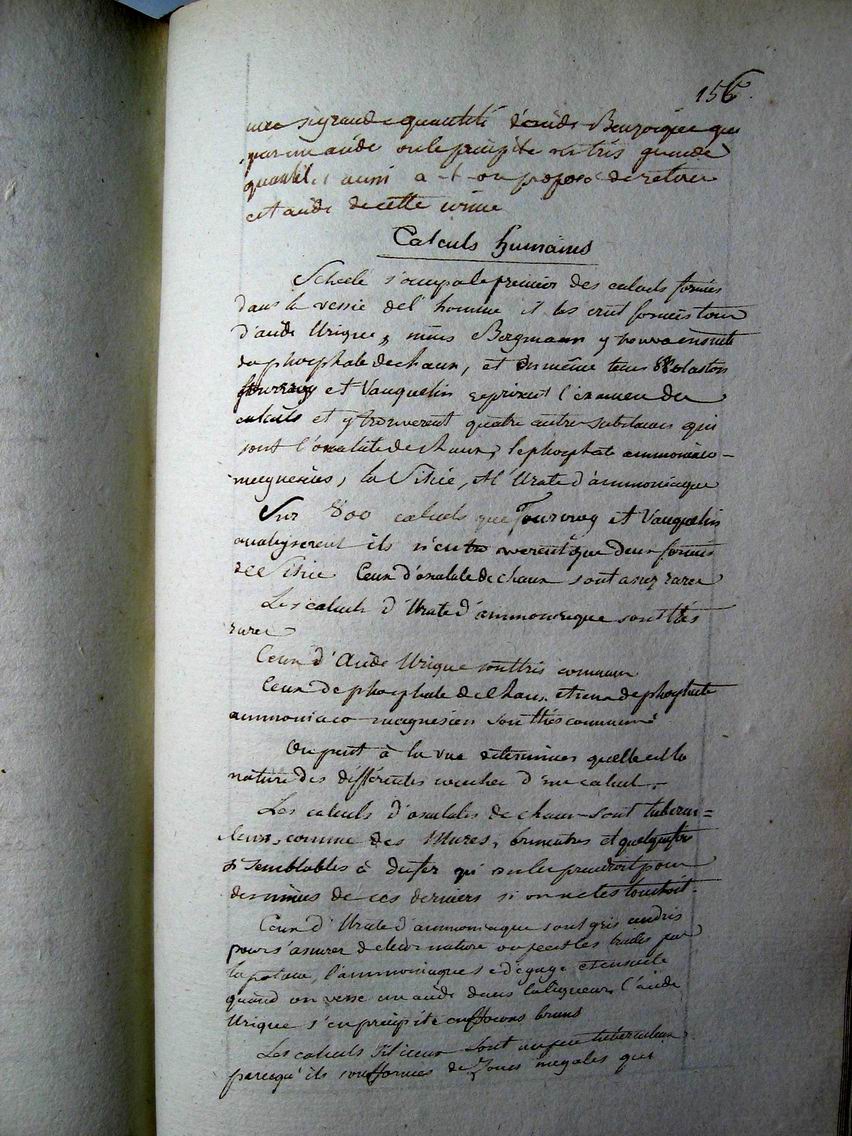 156.
une si grande quantité d'acide Benzoique que
par un acide on le précipite en très grande
quantité, aussi a-t-on proposé de retirer
cet acide de cette urine
Calculs humains
Scheele s'occupa le premier des calculs formés
dans la vessie de l'homme il les crut formés tous
d'acide Urique, mais Bergmann y trouva ensuite
du phosphate de chaux, et en même tems Wolaston
fourcroy et Vauquelin reprirent l'examen des
calculs et y trouverent quatre autres substances qui
sont l'oxalate de chaux, le phosphate ammoniaco-
magnesien, la Silice, et l'Urate d'ammoniaque
Sur 800 calculs que Fourcroy et Vauquelin
analyserent ils n'en trouverent que deux formés
de Silice Ceux d'oxalate de chaux sont assez rares
Les calculs d'Urate d'ammoniaque sont très
rares
Ceux d'Acide Urique sont très communs
Ceux de phosphate de chaux, et ceux de phosphate
ammoniaco-magnesien sont très communs
On peut à la vue déterminer quelle est la
nature des différentes couches d'un calcul.
Les calculs d'oxalates de chaux sont tubercu=
leux, comme des Mures, brunatres et quelquefois
si semblables à du fer qu'on les prendroit pour
des mines de ces derniers si on ne les touchoit.
Ceux d'Urate d'ammoniaque sont gris cendrés
pour s'assurer de leur nature on peut les traiter par
la potasse, l'ammoniaque se dégage et ensuite
quand on verse un acide dans la liqueur, l'acide
Urique s'en précipite en flocons bruns
Les calculs siliceux sont un peu tuberculeux
parcequ'ils sont formés de Zones inégales qui